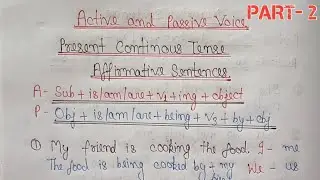 PART-2
Active and Passive Voice
Present Continous Tense
Affirmative Sentences
A- Sub + is/am/are + V₁ + ing + object
P- Obj + is/am/are + being + V₃ + by + obj
① My friend is cooking the food. I - me
The food is being cooked by + my We - us